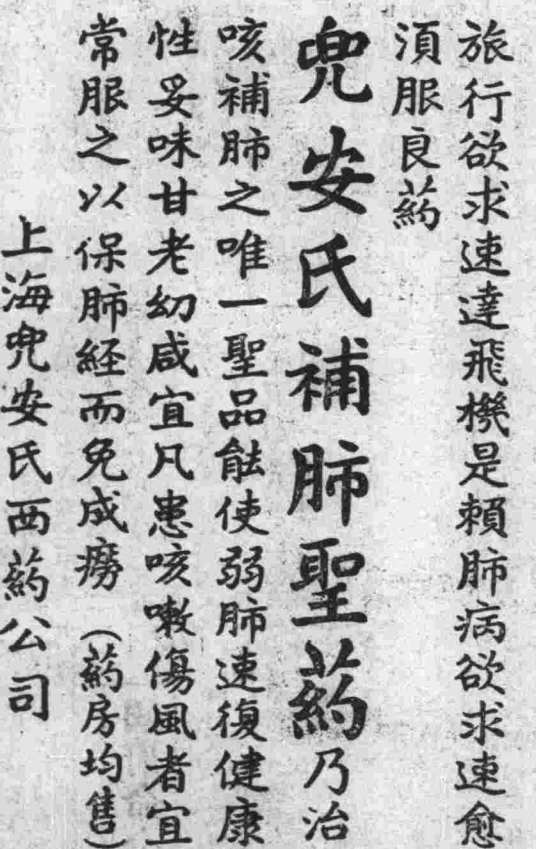 旅行欲求速達飛機是賴肺病欲求速愈
須服良葯
兜安氏補肺聖葯乃治
咳補肺之唯一聖品能使弱肺速復健康
性妥味甘老幼咸宜凡患咳嗽傷風者宜
常服之以保肺経而免成癆（葯房均售）
上海兜安氏西葯公司